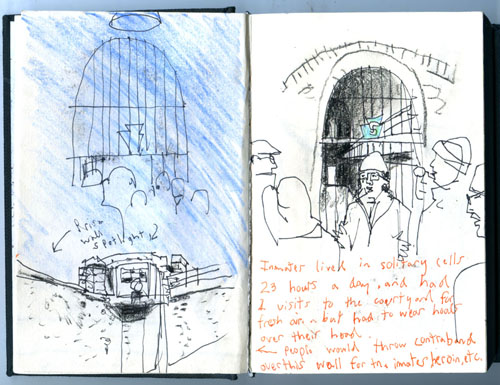 Prison
wall
spotlight
5
Inmates lived in solitary cells
23 hours a day, and had
2 visits to the courtyard for
fresh air, but had to wear hoods
over their head.
← People would throw contraband
over this wall for the inmates, heroin, etc.